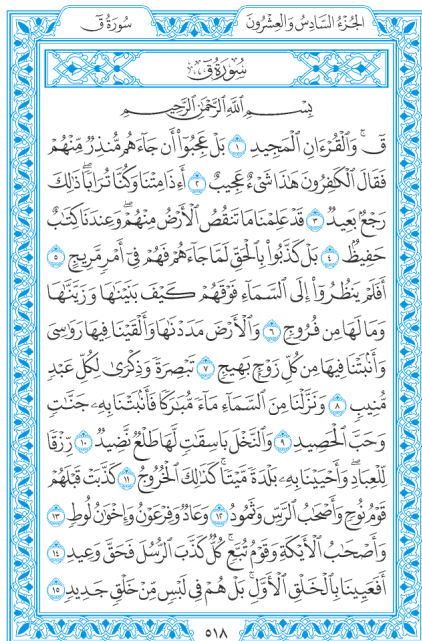 الجُزءُ السَّادِسُ وَالعِشْرُونَ سُورَةُ ق
سُورَةُ ق
بِسْمِ ٱللَّهِ ٱلرَّحْمَٰنِ ٱلرَّحِيمِ
قٓۚ وَٱلْقُرْءَانِ ٱلْمَجِيدِ ١ بَلْ عَجِبُوٓا۟ أَن جَآءَهُم مُّنذِرٌ مِّنْهُمْ
فَقَالَ ٱلْكَٰفِرُونَ هَٰذَا شَىْءٌ عَجِيبٌ ٢ أَءِذَا مِتْنَا وَكُنَّا تُرَابًاۖ ذَٰلِكَ
رَجْعٌۢ بَعِيدٌ ٣ قَدْ عَلِمْنَا مَا تَنقُصُ ٱلْأَرْضُ مِنْهُمْۖ وَعِندَنَا كِتَٰبٌ
حَفِيظٌۢ ٤ بَلْ كَذَّبُوا۟ بِٱلْحَقِّ لَمَّا جَآءَهُمْ فَهُمْ فِىٓ أَمْرٍ مَّرِيجٍ ٥
أَفَلَمْ يَنظُرُوٓا۟ إِلَى ٱلسَّمَآءِ فَوْقَهُمْ كَيْفَ بَنَيْنَٰهَا وَزَيَّنَّٰهَا
وَمَا لَهَا مِن فُرُوجٍ ٦ وَٱلْأَرْضَ مَدَدْنَٰهَا وَأَلْقَيْنَا فِيهَا رَوَٰسِىَ
وَأَنۢبَتْنَا فِيهَا مِن كُلِّ زَوْجٍۭ بَهِيجٍ ٧ تَبْصِرَةً وَذِكْرَىٰ لِكُلِّ عَبْدٍ
مُّنِيبٍ ٨ وَنَزَّلْنَا مِنَ ٱلسَّمَآءِ مَآءً مُّبَٰرَكًا فَأَنۢبَتْنَا بِهِۦ جَنَّٰتٍ
وَحَبَّ ٱلْحَصِيدِ ٩ وَٱلنَّخْلَ بَاسِقَٰتٍ لَّهَا طَلْعٌ نَّضِيدٌ ١٠ رِّزْقًا
لِّلْعِبَادِۖ وَأَحْيَيْنَا بِهِۦ بَلْدَةً مَّيْتًاۚ كَذَٰلِكَ ٱلْخُرُوجُ ١١ كَذَّبَتْ قَبْلَهُمْ
قَوْمُ نُوحٍ وَأَصْحَٰبُ ٱلرَّسِّ وَثَمُودُ ١٢ وَعَادٌ وَفِرْعَوْنُ وَإِخْوَٰنُ لُوطٍ ١٣
وَأَصْحَٰبُ ٱلْأَيْكَةِ وَقَوْمُ تُبَّعٍۚ كُلٌّ كَذَّبَ ٱلرُّسُلَ فَحَقَّ وَعِيدِ ١٤
أَفَعَيِينَا بِٱلْخَلْقِ ٱلْأَوَّلِۚ بَلْ هُمْ فِى لَبْسٍ مِّنْ خَلْقٍ جَدِيدٍ ١٥
٥١٨